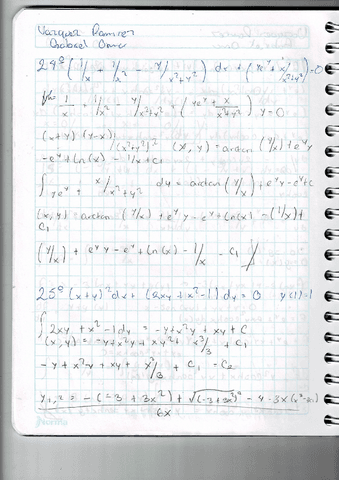 Vazquez Ramirez
Omar
24º (1/x + 1/x² - y/x²+y²) dx + (ye^y + x/x²+y²) = 0
1/x + 1/x² - y/x²+y² + (ye^y + x/x²+y²) y = 0
(x+y)(y-x)/(x²+y²)² (x, y) = arctan (y/x) + e^y y
- e^y + ln(x) - 1/x + c1
∫ ye^y + x/x²+y² dy = arctan (y/x) + e^y y - e^y + c
(x, y) = arctan (y/x) + e^y y - e^y + ln(x) - (1/x) +
c1
(y/x) + e^y y - e^y + ln(x) - 1/x - c1
25º (x+y)² dx + (2xy + x² - 1) dy = 0 y(1) = 1
∫ 2xy + x² - 1 dy = -y + x²y + xy + c
(x, y) = -y + x²y + xy² + x³/3 + c1
- y + x²y + xy + x³/3 + c1 - c2
y1,2 = -(-3 + 3x²) + √(-3+3x²)² - 4 · 3x
6x